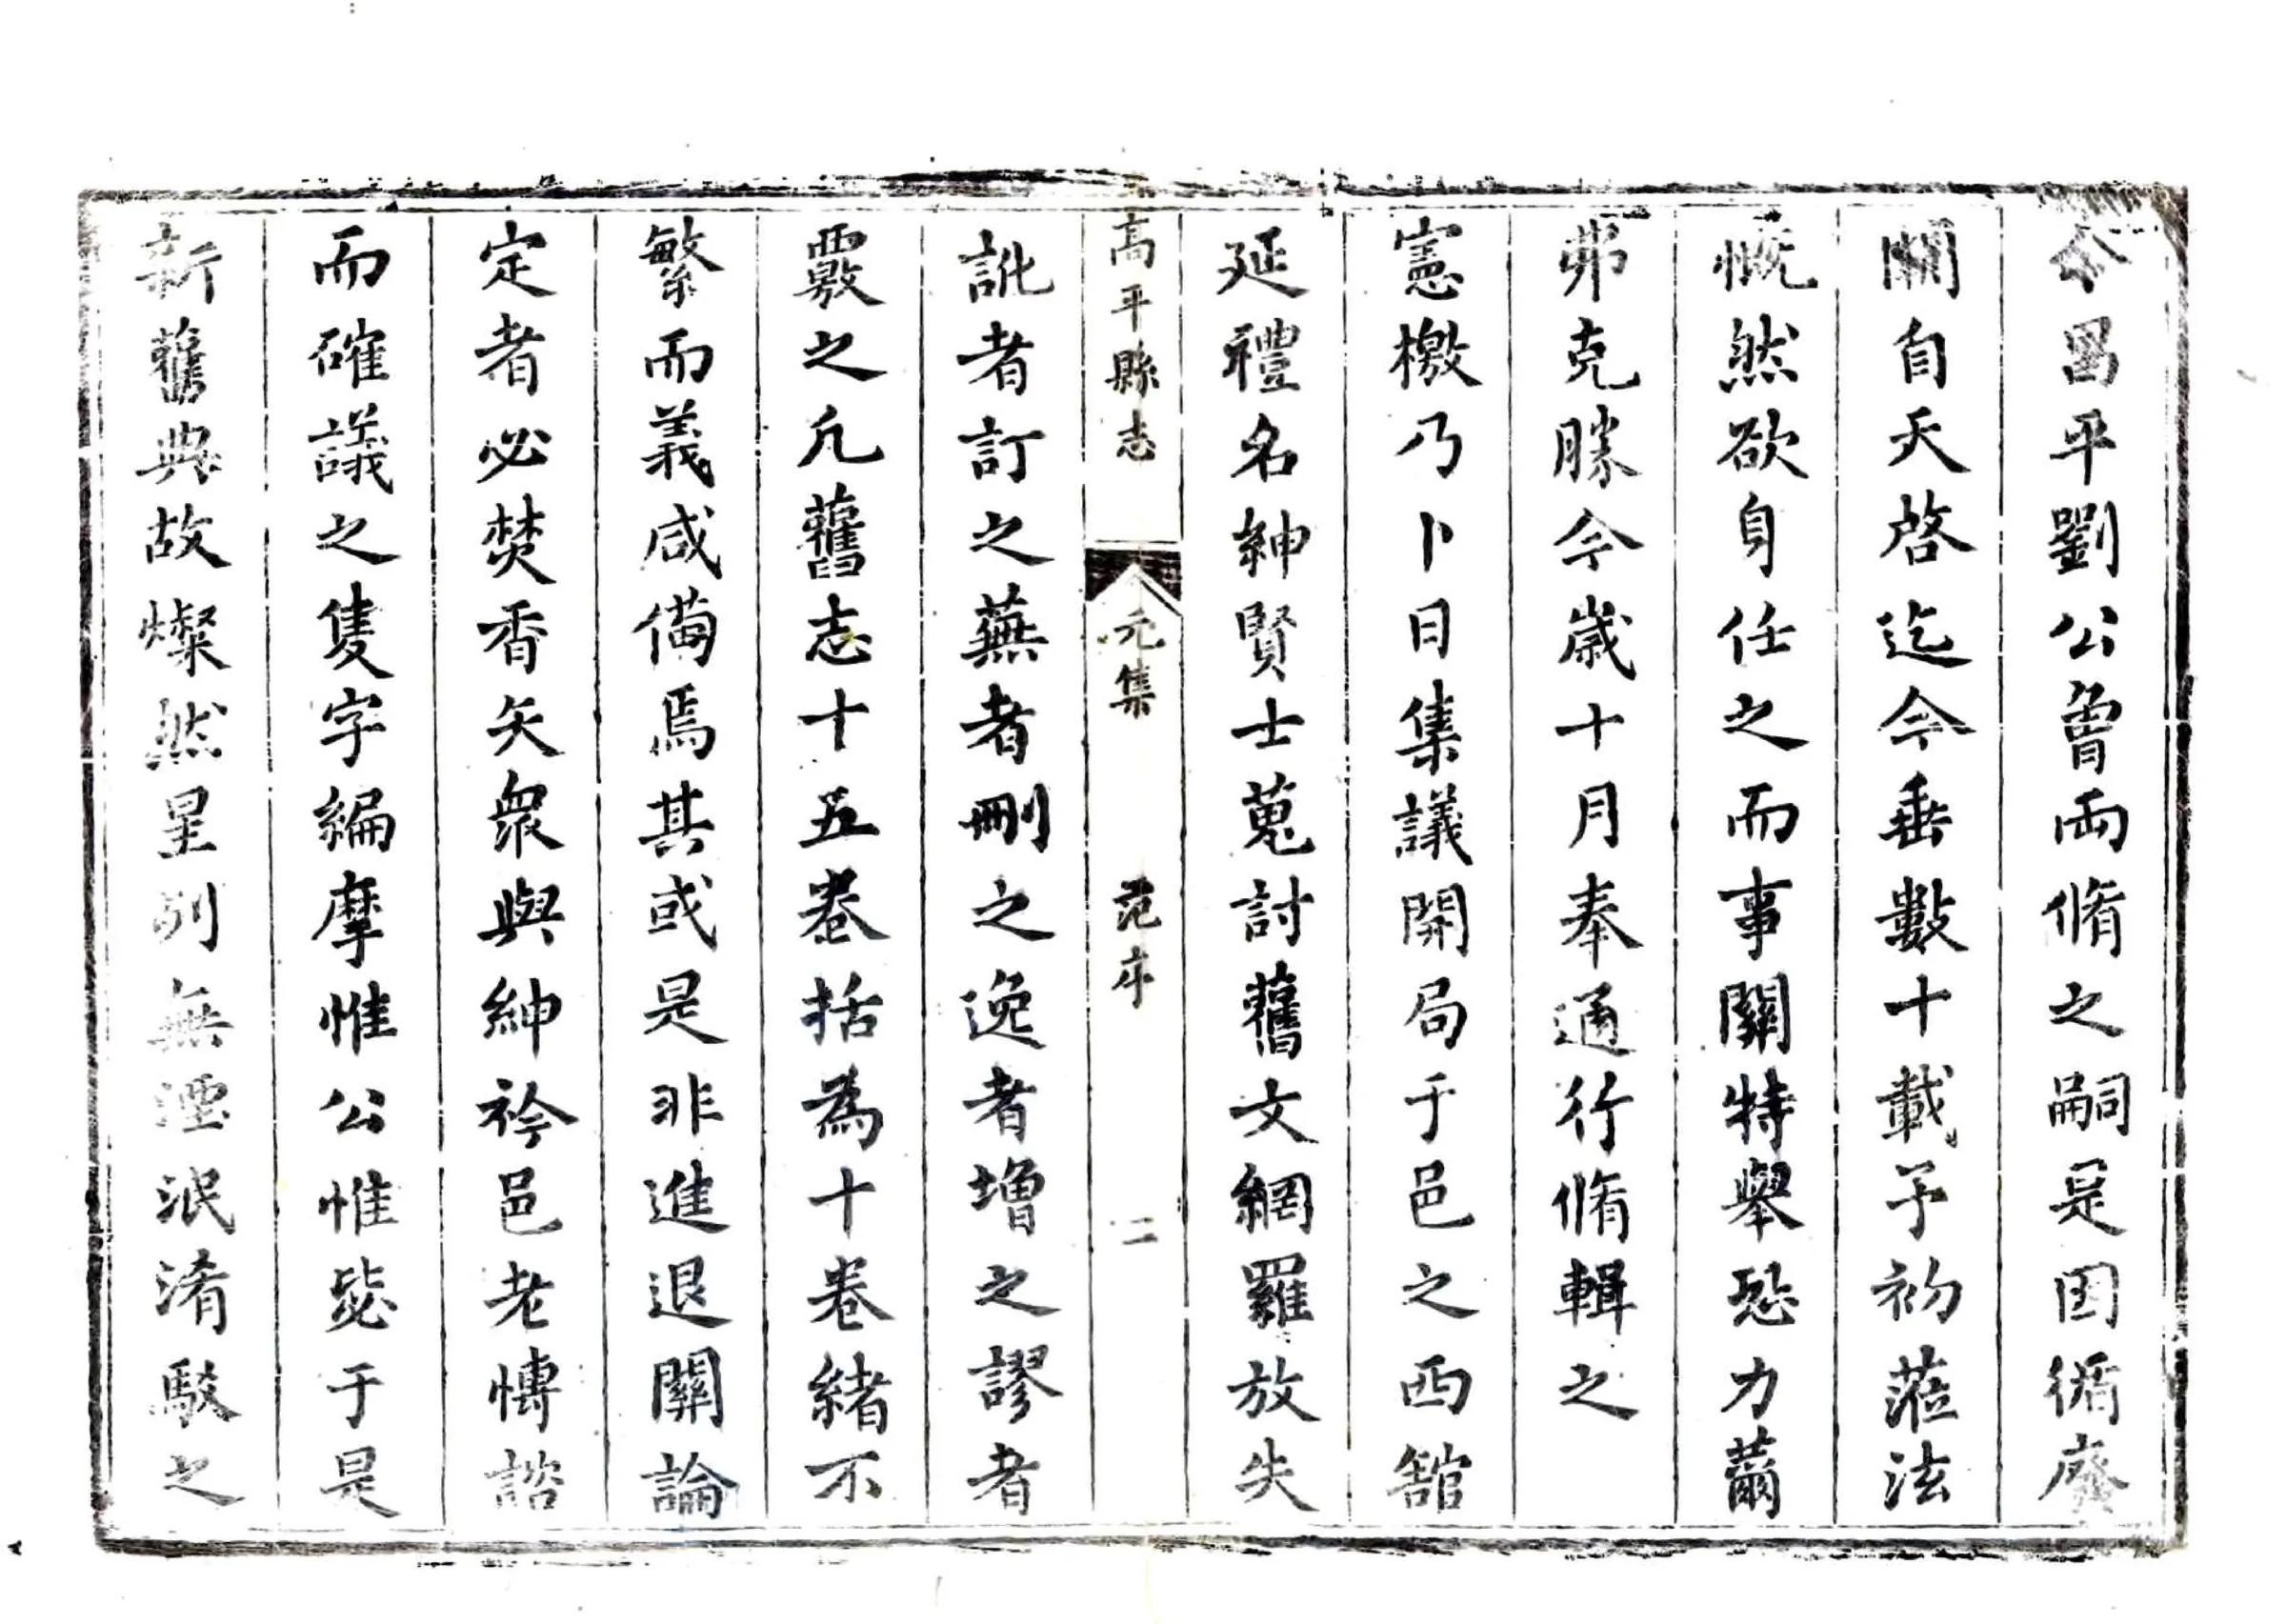 令昌平劉公會兩脩之嗣是因循廢
闕自天啓迄今垂數十載予初蒞法
慨然欲自任之而事關特舉恐力薾
弗克勝今歲十月奉通行脩輯之
憲檄乃卜日集議開局于邑之西舘
延禮名紳賢士蒐討舊文網羅放失
高平縣志
元集
范序
二
訛者訂之蕪者刪之逸者增之謬者
覈之凢舊志十五卷括為十卷緒不
繁而義咸備焉其或是非進退關論
定者必焚香矢衆與紳衿邑老愽諮
而確議之隻字編摩惟公惟毖于是
新舊典故燦然星列無湮泯淆駁之